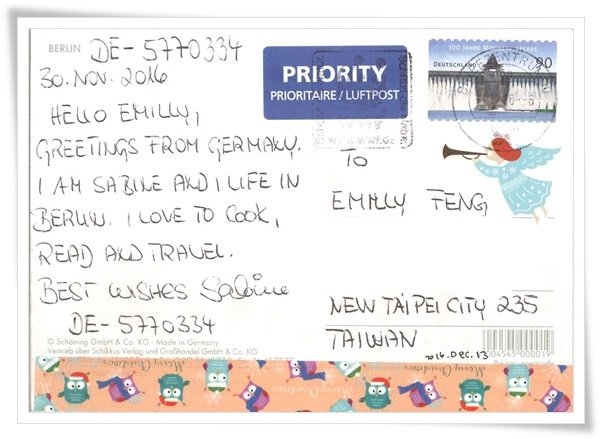 BERLIN
DE-5770334
30. NOV. 2016
HELLO EMILLY,
GREETINGS FROM GERMANY.
I AM SABINE AND I LIFE IN
BERLIN. I LOVE TO COOK,
READ AND TRAVEL.
BEST WISHES Sabine
DE-5770334
© Schöning GmbH & Co. KG · Made in Germany
Vertrieb über Schikkus Verlag und Großhandel GmbH & Co. KG
PRIORITY
PRIORITAIRE / LUFTPOST
100 JAHRE
DEUTSCHLAND
90
TO
EMILLY FENG,
NEW TAIPEI CITY 235
TAIWAN
2016. DEC. 13
04545 000019
Merry Christmas
Merry Christmas